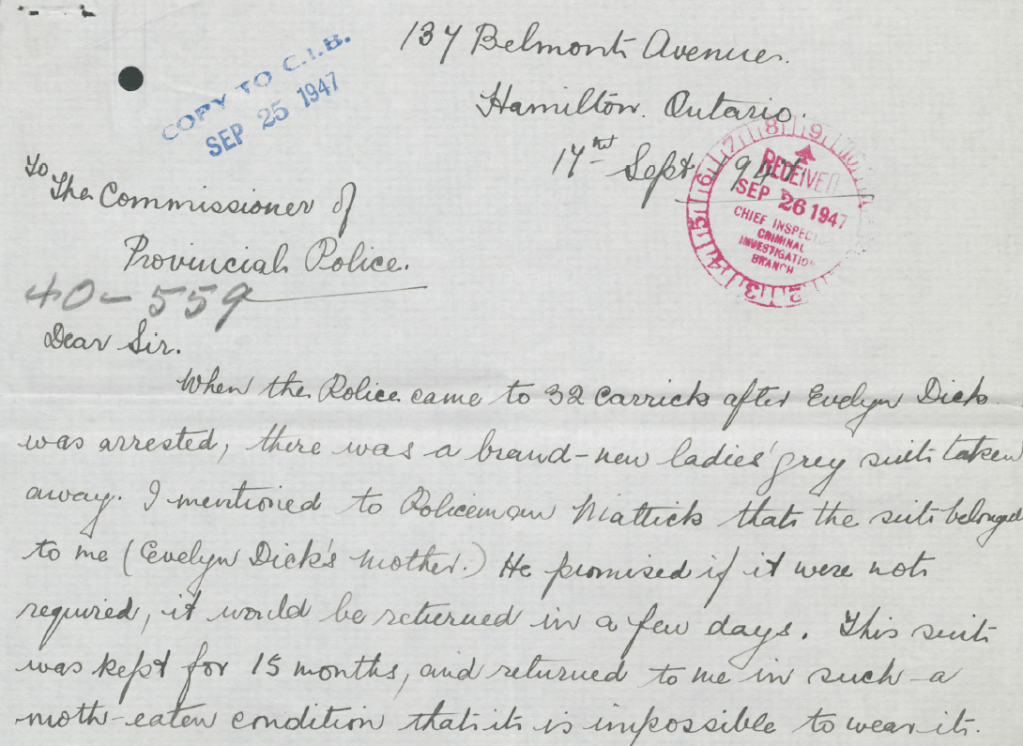 137 Belmont Avenue.
COPY TO C.I.B.
SEP 25 1947
Hamilton. Ontario.
17th Sept 1947.
7 8 9 10
6
5
4
3 2
RECEIVED
SEP 26 1947
CHIEF INSPEC
CRIMINAL
INVESTIGATIO
BRANCH
To
The Commissioner of
Provincial Police.
40-559
Dear Sir.
When the Police came to 32 Carrick after Evelyn Dick
was arrested, there was a brand-new ladies' grey suit taken
away. I mentioned to Policeman Mattick that the suit belonged
to me (Evelyn Dick's Mother.) He promised if it were not
required, it would be returned in a few days. This suit
was kept for 15 months, and returned to me in such-a
moth-eaten condition that it is impossible to wear it.